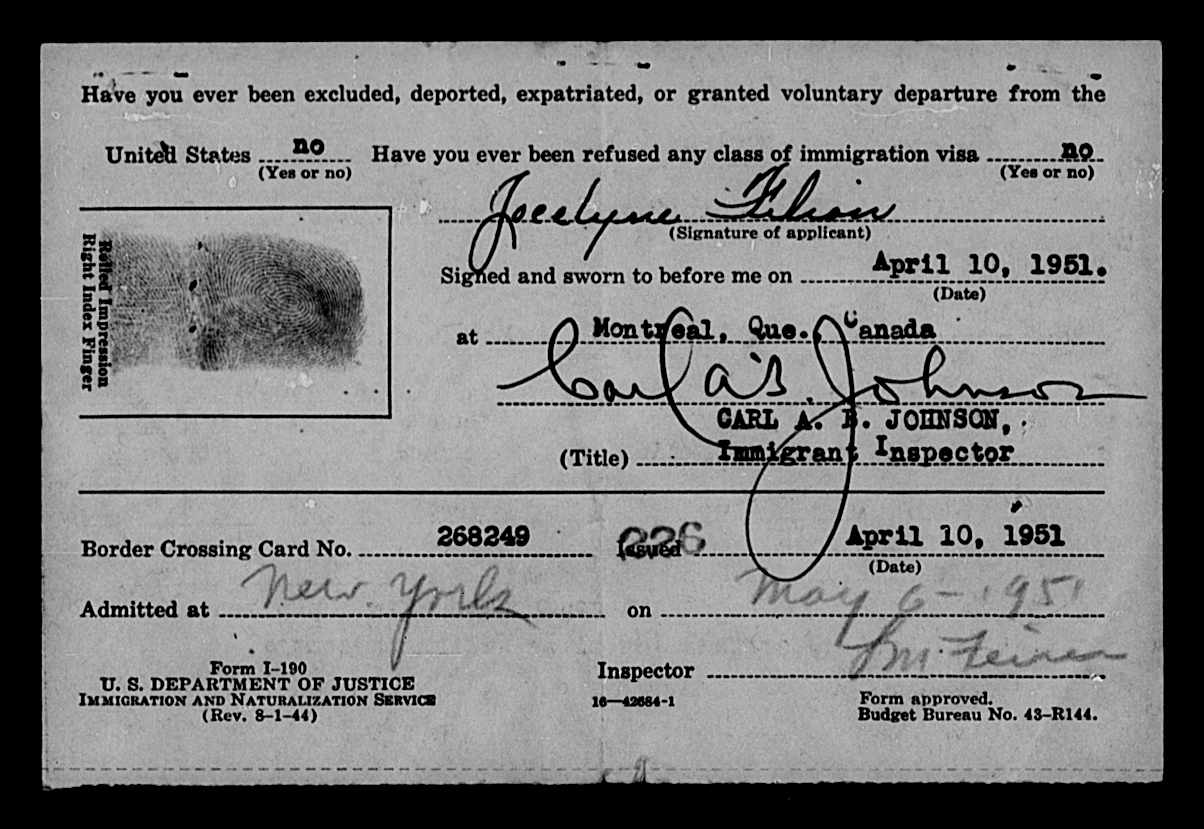 Have you ever been excluded, deported, expatriated, or granted voluntary departure from the
United States no Have you ever been refused any class of immigration visa no
(Yes or no) (Yes or no)
Jocelyne Filion
(Signature of applicant)
Rolled Impression
Right Index Finger
Signed and sworn to before me on April 10, 1951.
(Date)
at Montreal, Que. Canada
Carl A B Johnson
CARL A. B. JOHNSON,
(Title) Immigrant Inspector
Border Crossing Card No. 268249 Issued 226 April 10, 1951
(Date)
Admitted at New York on May 6- 1951
Inspector
Form I-190
U. S. DEPARTMENT OF JUSTICE
IMMIGRATION AND NATURALIZATION SERVICE
(Rev. 8-1-44)
16—42684-1
Form approved.
Budget Bureau No. 43-R144.